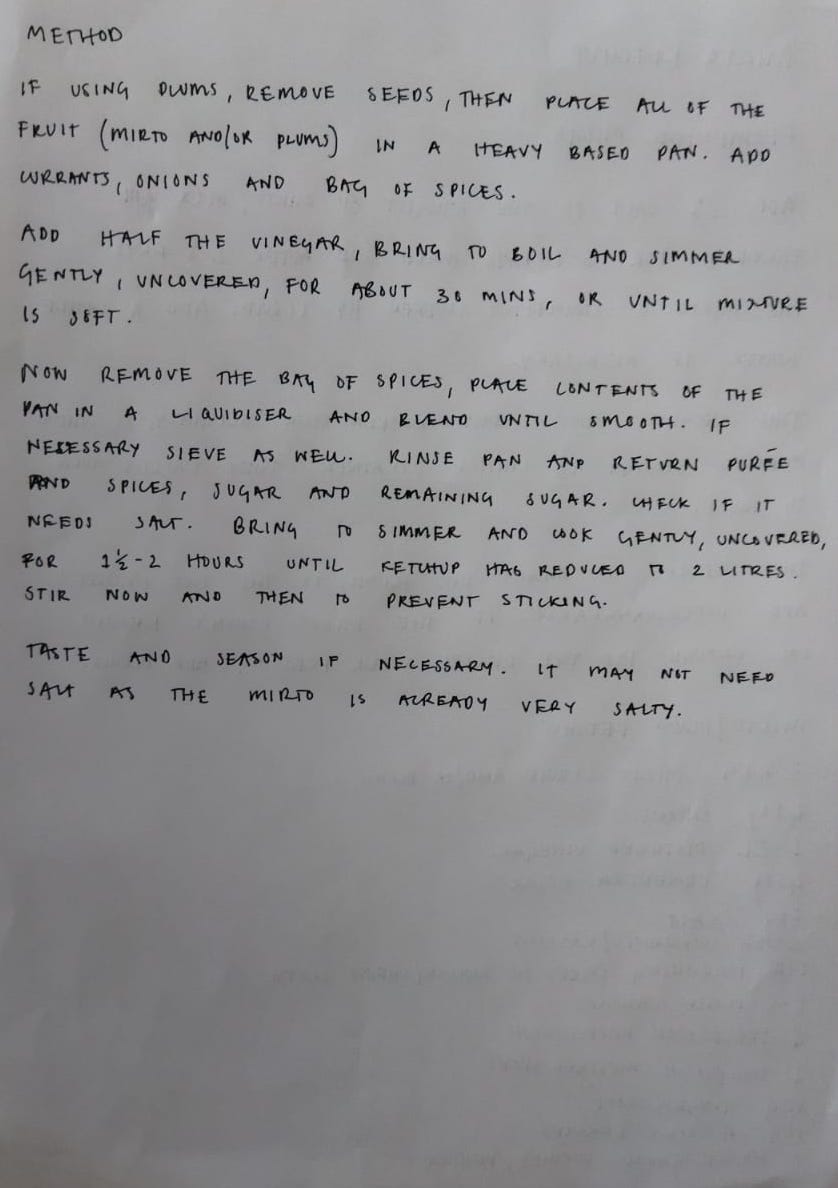 METHOD
IF USING PLUMS, REMOVE SEEDS, THEN PLACE ALL OF THE
FRUIT (MIRTO AND/OR PLUMS) IN A HEAVY BASED PAN. ADD
CURRANTS, ONIONS AND BAG OF SPICES.
ADD HALF THE VINEGAR, BRING TO BOIL AND SIMMER
GENTLY, UNCOVERED, FOR ABOUT 30 MINS, OR UNTIL MIXTURE
IS SOFT.
NOW REMOVE THE BAG OF SPICES, PLACE CONTENTS OF THE
PAN IN A LIQUIDISER AND BLEND UNTIL SMOOTH. IF
NECESSARY SIEVE AS WELL. RINSE PAN AND RETURN PURÉE
AND SPICES, SUGAR AND REMAINING SUGAR. CHECK IF IT
NEEDS SALT. BRING TO SIMMER AND COOK GENTLY, UNCOVERED,
FOR 1½-2 HOURS UNTIL KETCHUP HAS REDUCED TO 2 LITRES.
STIR NOW AND THEN TO PREVENT STICKING.
TASTE AND SEASON IF NECESSARY. IT MAY NOT NEED
SALT AS THE MIRTO IS ALREADY VERY SALTY.